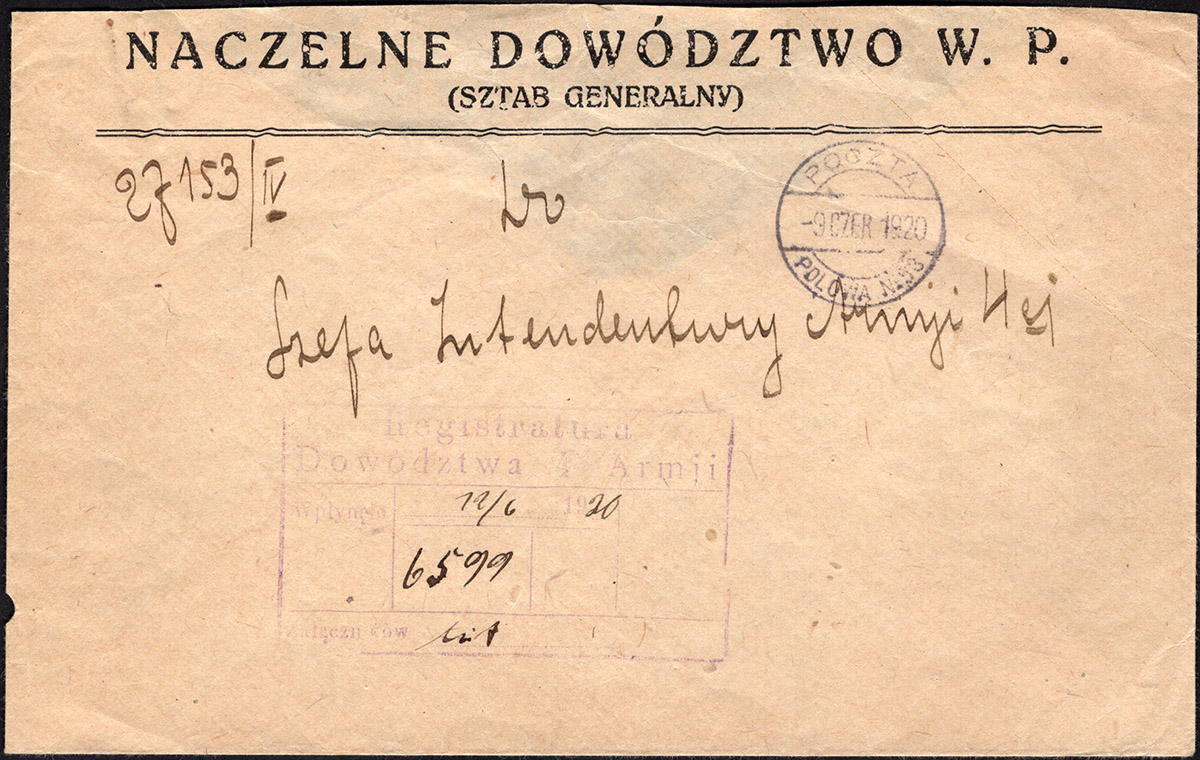 NACZELNE DOWÓDZTWO W. P.
(SZTAB GENERALNY)
27153/IV
Do
POCZTA
-9 CZER 1920
POLOWA N
Szefa Intendentury Armji 4ej
Registratura
Dowództwa 4 Armji
Wpłynęło 12/6 1920
6599
Załączników